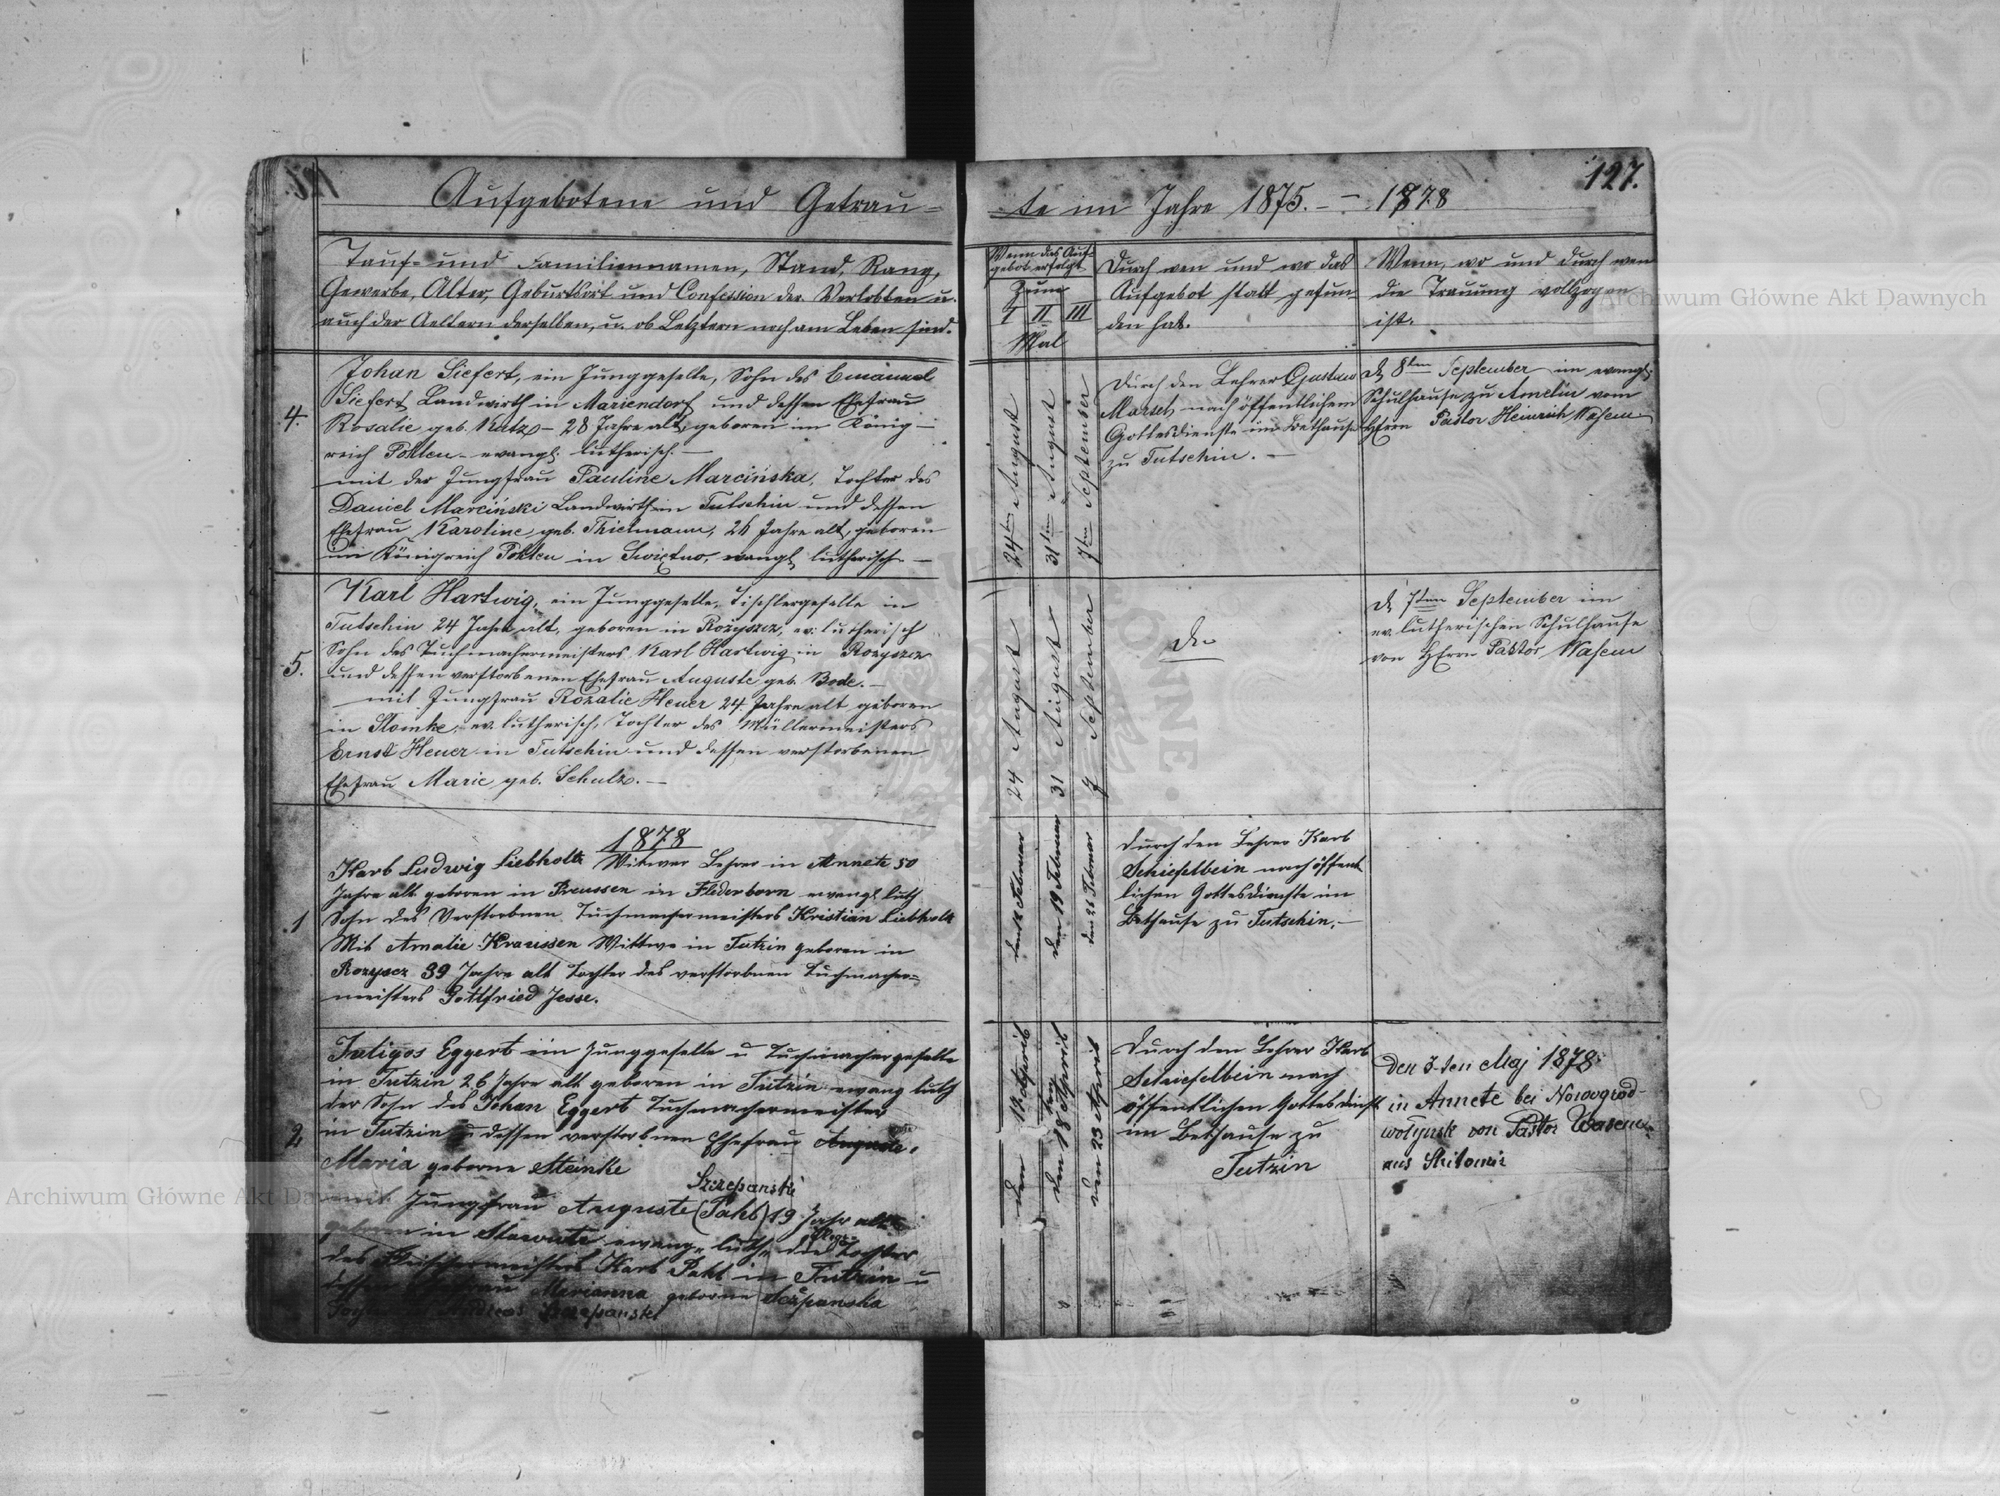 127.
Aufgebotene und Getrau-
te im Jahre 1875. – 1878
Tauf- und Familiennamen, Stand, Rang,
Gewerbe, Alter, Geburtsort und Confession der Verlobten u.
auch der Aeltern derselben, u. ob Letztern noch am Leben sind.
Wenn das Auf-
gebot erfolgt
Zum
I II III
Mal
Durch wen und wo das
Aufgebot statt gefun-
den hat.
Wenn, wo und durch wen
die Trauung vollzogen
ist.
4.
Johan Siefert, ein Junggeselle, Sohn des Emanuel
Siefert Landwirth in Mariendorf und dessen Ehefrau
Rosalie geb. Katz – 28 Jahre alt, geboren im König-
reich Pohlen – evangl. lutherisch. –
mit der Jungfrau Pauline Marcińska, Tochter des
Daniel Marciński Landwirth in Tutschin und dessen
Ehefrau Karoline, geb. Thielmann, 26 Jahre alt, geboren
im Königreich Pohlen in Swiętno, evangl. lutherisch –
24ten August
31ten August
7ten September
Durch den Lehrer Gustaw
Marset nach öffentlichem
Gottesdienste im Bethause
zu Tutschin. –
d. 8ten September im evangl.
Schulhause zu Amelin vom
Herrn Pastor Heinrich Wasem
5.
Karl Hartwig, ein Junggeselle, Tischlergeselle in
Tutschin 24 Jahre alt, geboren in Rożyszcz, ev. lutherisch
Sohn des Tuchmachermeisters Karl Hartwig in Rożyszcz
und dessen verstorbenen Ehefrau Auguste geb. Bode. –
mit Jungfrau Rozalie Heuer 24 Jahre alt geboren
in Slomke, ev. lutherisch, Tochter des Müllermeisters
Ernst Heuer in Tutschin und dessen verstorbenen
Ehefrau Marie geb. Schulz. –
24 August
31 August
7 September
d. 7ten September im
ev. lutherischen Schulhause
von Herrn Pastor Wasem
1878
1
Karl Ludwig Liebholtz Witwer Lehrer in Annete 50
Jahre alt geboren in Preussen in Flederborn evangl. luth
Sohn des Verstorbnen Tuchmachermeisters Kristian Liebholtz
Mit Amalie Kraussen Wittwe in Tutzin geboren in
Rozyscz 39 Jahre alt Tochter des verstorbnen Tuchmacher-
meisters Gottfried Jesse.
den 12 Februar
den 19 Februar
den 26 Februar
Durch den Lehrer Karl
Schiefelbein nach öffent
lichen Gottesdienste im
Bethause zu Tutschin. –
2
Eggert ein Junggeselle u Tuchmachergeselle
in Tutzin 26 Jahre alt geboren in Tutzin evang luth
der Sohn des Johan Eggert Tuchmachermeister
in Tutzin u dessen verstorbnen Ehefrau
Maria geborne Steinke
Szczepanski
mit Jungfrau Auguste (Pahl) 19 Jahr alt
geboren in Slawute evang. luth. die Tochter
des Fleischermeisters Karl Pahl in Tutzin u
dessen Ehefrau Marianna geborne Sczepanska
Szczepanski
den April
den 18 April
den 23 April
Durch den Lehrer Karl
Schiefelbein nach
öffentlichen Gottesdienst
im Bethause zu
Tutzin
den 3-ten Maj 1878
in Annete bei Nowogrod-
wolynsk von Pastor Wasem
aus Shitomir
Archiwum Główne Akt Dawnych
Archiwum Główne Akt Dawnych